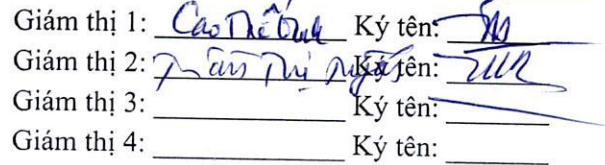 Giám thị 1: Cao Thế Ký tên:
Giám thị 2: Trần Thị Ký tên:
Giám thị 3: Ký tên:
Giám thị 4: Ký tên: